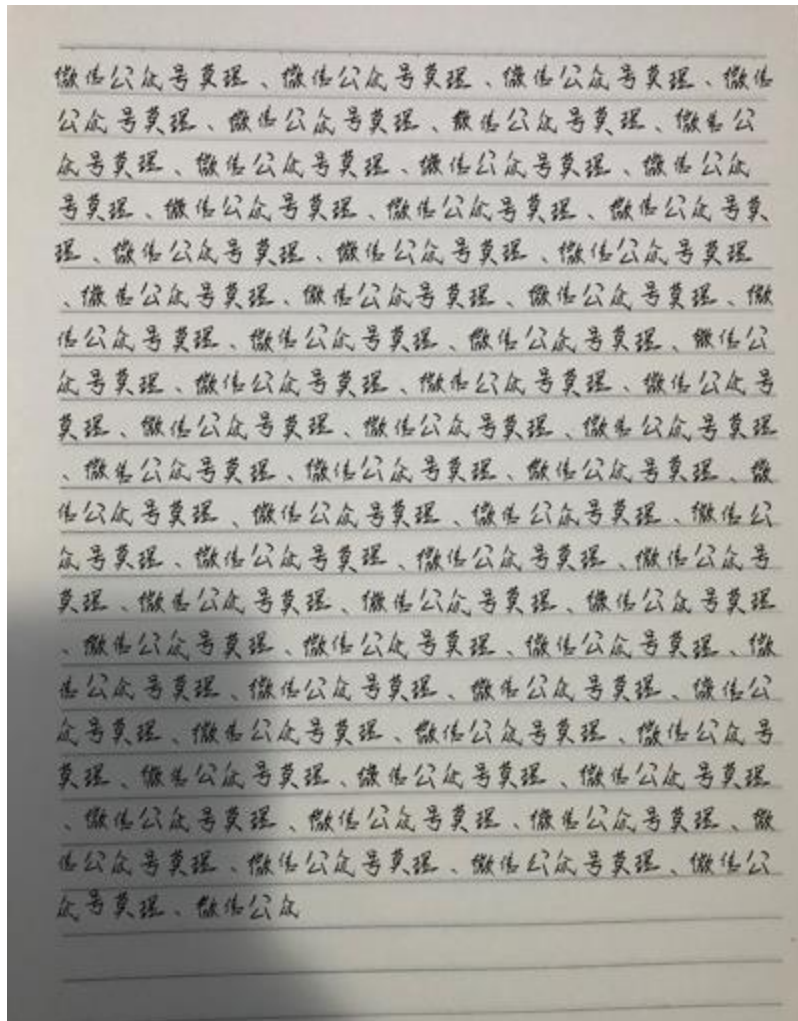 微信公众号莫理、微信公众号莫理、微信公众号莫理、微信
公众号莫理、微信公众号莫理、微信公众号莫理、微信公
众号莫理、微信公众号莫理、微信公众号莫理、微信公众
号莫理、微信公众号莫理、微信公众号莫理、微信公众号莫
理、微信公众号莫理、微信公众号莫理、微信公众号莫理
、微信公众号莫理、微信公众号莫理、微信公众号莫理、微
信公众号莫理、微信公众号莫理、微信公众号莫理、微信公
众号莫理、微信公众号莫理、微信公众号莫理、微信公众号
莫理、微信公众号莫理、微信公众号莫理、微信公众号莫理
、微信公众号莫理、微信公众号莫理、微信公众号莫理、微
信公众号莫理、微信公众号莫理、微信公众号莫理、微信公
众号莫理、微信公众号莫理、微信公众号莫理、微信公众号
莫理、微信公众号莫理、微信公众号莫理、微信公众号莫理
、微信公众号莫理、微信公众号莫理、微信公众号莫理、微
信公众号莫理、微信公众号莫理、微信公众号莫理、微信公
众号莫理、微信公众号莫理、微信公众号莫理、微信公众号
莫理、微信公众号莫理、微信公众号莫理、微信公众号莫理
、微信公众号莫理、微信公众号莫理、微信公众号莫理、微
信公众号莫理、微信公众号莫理、微信公众号莫理、微信公
众号莫理、微信公众